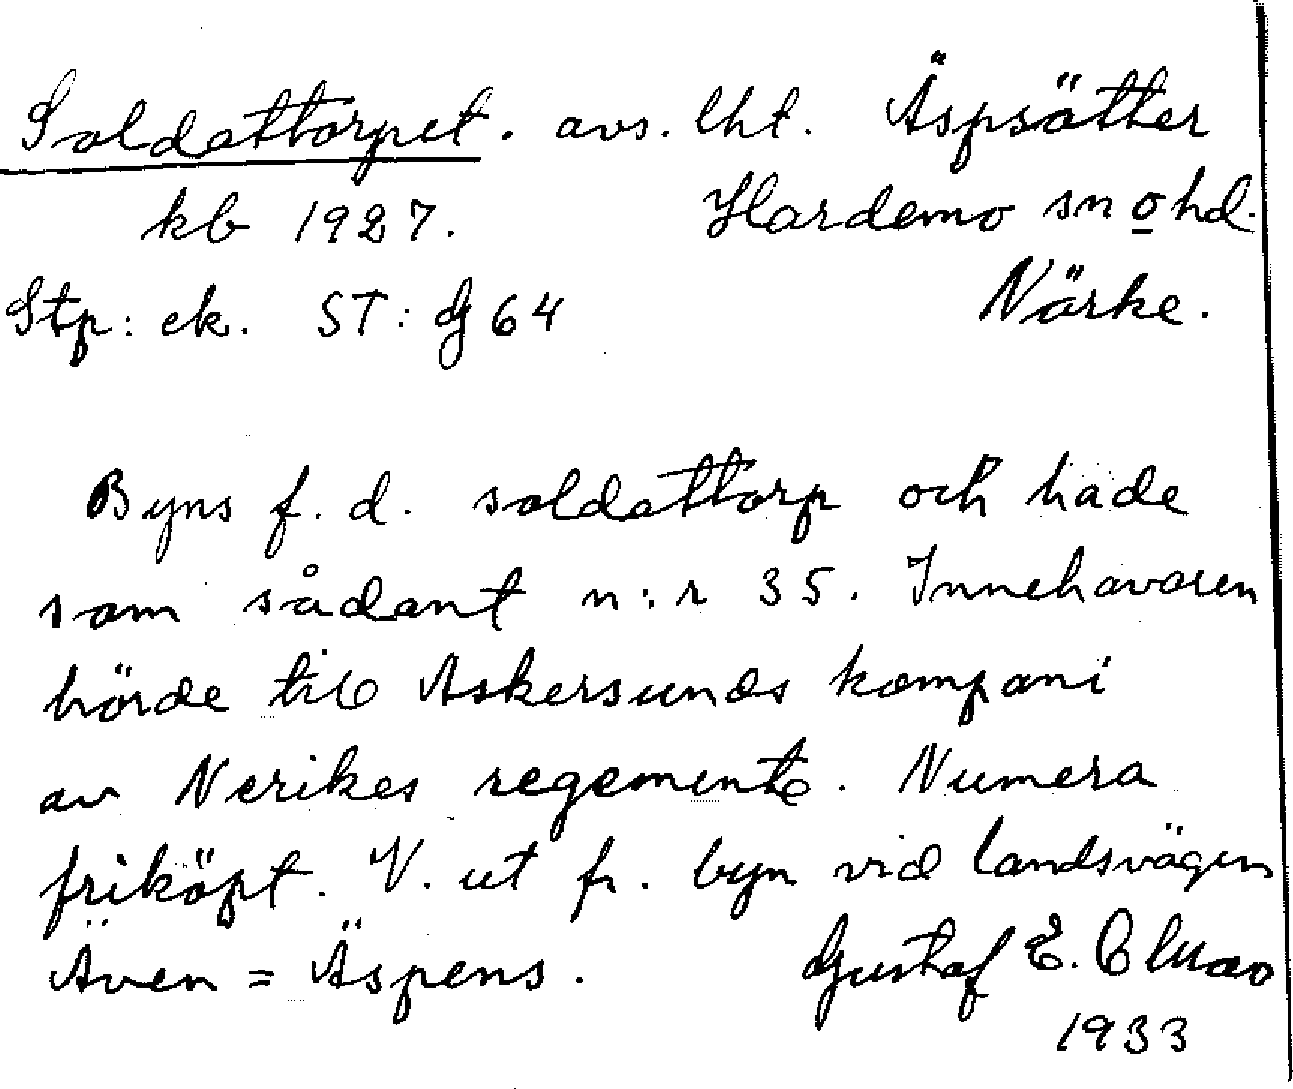 Soldattorpet. avs. lht. Äspsätter
kb 1927. Hardemo sn o hd.
Stp: ek. ST: G 64 Närke.
Byns f. d. soldattorp och hade
som sådant n:r 35. Innehavaren
hörde till Askersunds kompani
av Nerikes regemente. Numera
friköpt. V. ut fr. byn vid landsvägen
Även = Äspens. Gustaf E.
1933